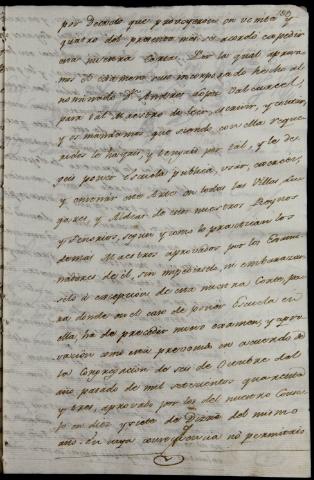 por Decreto que proveyeron en veinte y
quatro del presente mes se acordó expedir
esta nuestra Carta. Por la qual aprova-
mos el examen que incorporado hecho al
nominado Dn. Andres Lopez Valcarcel,
para tal Maestro de leer, escrivir, y contar,
y es mandamos que siendo con ella reque-
ridos le hayais, y tengais por tal, y le de-
geis poner Escuela publica, usar, exercer,
y enseñar este Arte en todas las Villas Lu-
gares, y Aldeas de estos nuestros Reynos
y Señorios, segun y como lo practican los
demas Maestros aprovados por los Exami-
nadores de él, sin impedirselo, ni embarazar-
selo á excepcion de esta nuestra Corte, pa-
ra donde en el caso de poner Escuela en
ella, ha de preceder nuevo examen, y apro-
vacion como está prevenido en acuerdo de
la Congregacion de seis de Octubre del
año pasado de mil setecientos quarenta
y tres, aprovado por los del nuestro Conse-
jo en diez y siete de Diziembre del mismo
año. En cuya consequencia no permitais